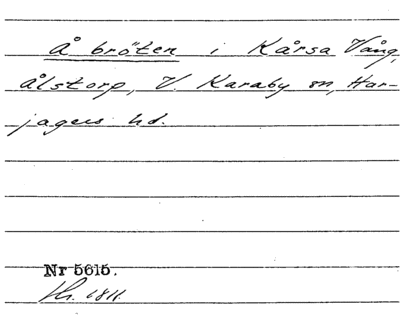 Å bröten i Kårsa Vång,
Ålstorp, V. Karaby sn, Har-
jagers hd.
Nr 5615.
Hr. 1811.